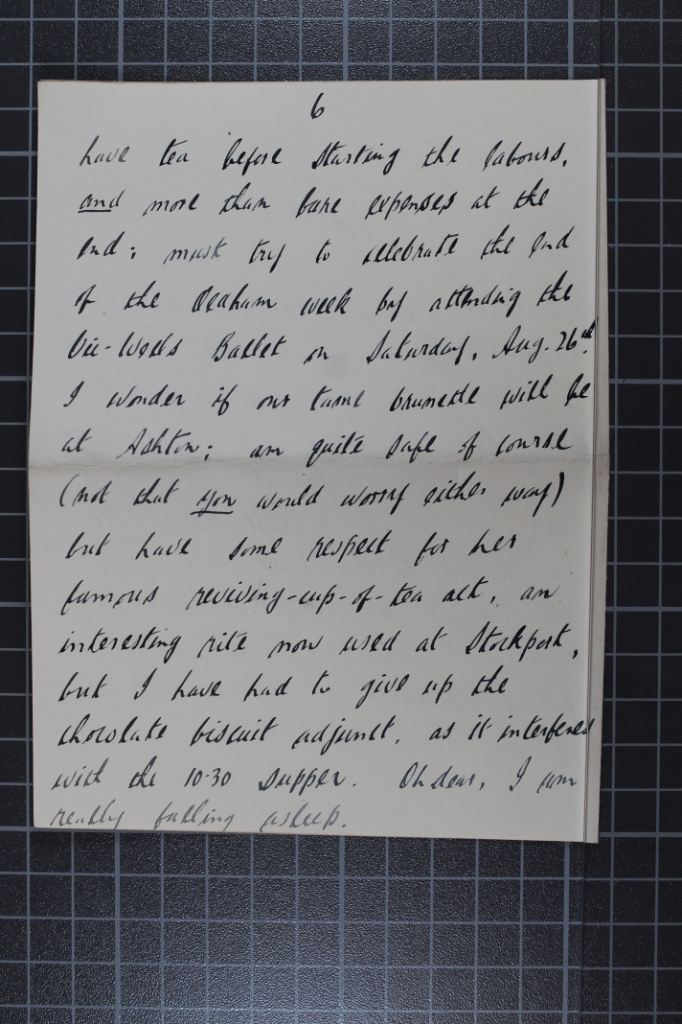 6
have tea before starting the labours,
and more than bare expenses at the
end; must try to celebrate the end
of the week by attending the
Vic-Wells Ballet on Saturday, Aug. 26th.
I wonder if our tame brunette will be
at Ashton; am quite safe of course
(not that you would worry either way)
but have some respect for her
famous reviving-cup-of-tea act, an
interesting rite now used at Stockport,
but I have had to give up the
chocolate biscuit adjunct, as it interferes
with the 10-30 supper. Oh dear, I am
really falling asleep.